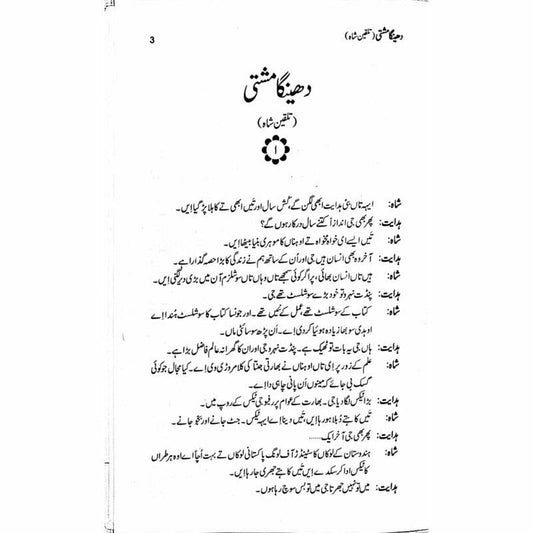 دھینگا مشتی (تلقین شاہ)
3
دھینگا مشتی
(تلقین شاہ)
۱
شاہ: ایہہ تاں بئی ہدایت ابھی لگن گے، گش سال اور تیں ابھی تے کاہلا پڑ گیا ایں۔
ہدایت: پھر بھی جی اندازاً کتنے سال درکار ہوں گے؟
شاہ: تیں ایسے ای خواہ مخواہ تے اوہناں کا موہری بنیا بیٹھا ایں۔
ہدایت: آخر وہ بھی انسان ہیں جی اور اُن کے ساتھ ہم نے زندگی کا بڑا حصہ گذارا ہے۔
شاہ: ہیں تاں انسان بھائی، پر اگر کوئی سمجھے تاں وہاں تاں سوشلزم آن میں بڑی دیر لگنی ایں۔
ہدایت: پنڈت نہرو تو خود بڑے سوشلسٹ تھے جی۔
شاہ: کتاب کے سوشلسٹ تھے عمل کے نئیں تھے۔ اور جونسا کتاب کا سوشلسٹ منڈا اے
اوہدی سو بھا زیادہ ہوئیا کردی اے۔ اَن پڑھ سوسائٹی ماں۔
ہدایت: ہاں جی یہ بات تو ٹھیک ہے۔ پنڈت نہرو جی اور ان کا گھرانہ عالم فاضل بڑا ہے۔
شاہ: علم کے زور پر ای تاں اوہناں نے بھارتی جنتا کی کلا مروڑی وی اے۔ کیا مجال جو کوئی
گسک بی جائے کہ مینوں اُن پانی چاہی دا اے۔
ہدایت: بڑا ٹیکس لگا دیا جی۔ بھارت کے عوام پر رفیوجی ٹیکس کے روپ میں۔
شاہ: تیں کا ہتے دُبلا ہو رہا ایں، تیں دینا اے ایہہ ٹیکس۔ جٹ جانے اور بجو جانے۔
ہدایت: پھر بھی جی آخر ایک......
شاہ: ہندوستان کے لوکاں کا سٹینڈرڈ آف لونگ پاکستانی لوکاں تے بہت اُچا اے اوہ ہر طراں
کا ٹیکس ادا کر سکدے ایں تیں کا ہتے جھری جا رہا ایں۔
ہدایت: میں تو نہیں جھرتا جی میں تو بس سوچ رہا ہوں۔